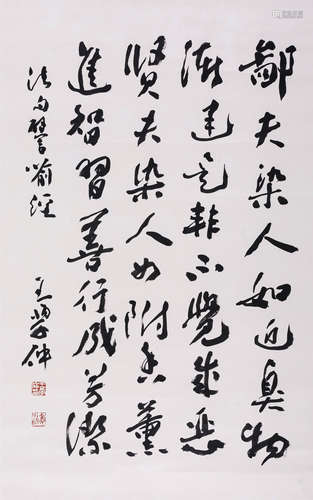 鄙夫染人如近臭物
漸迷是非不覺成惡
賢夫染人如附香薰
進智習善行成芳潔
法句譬喻經
王學仲